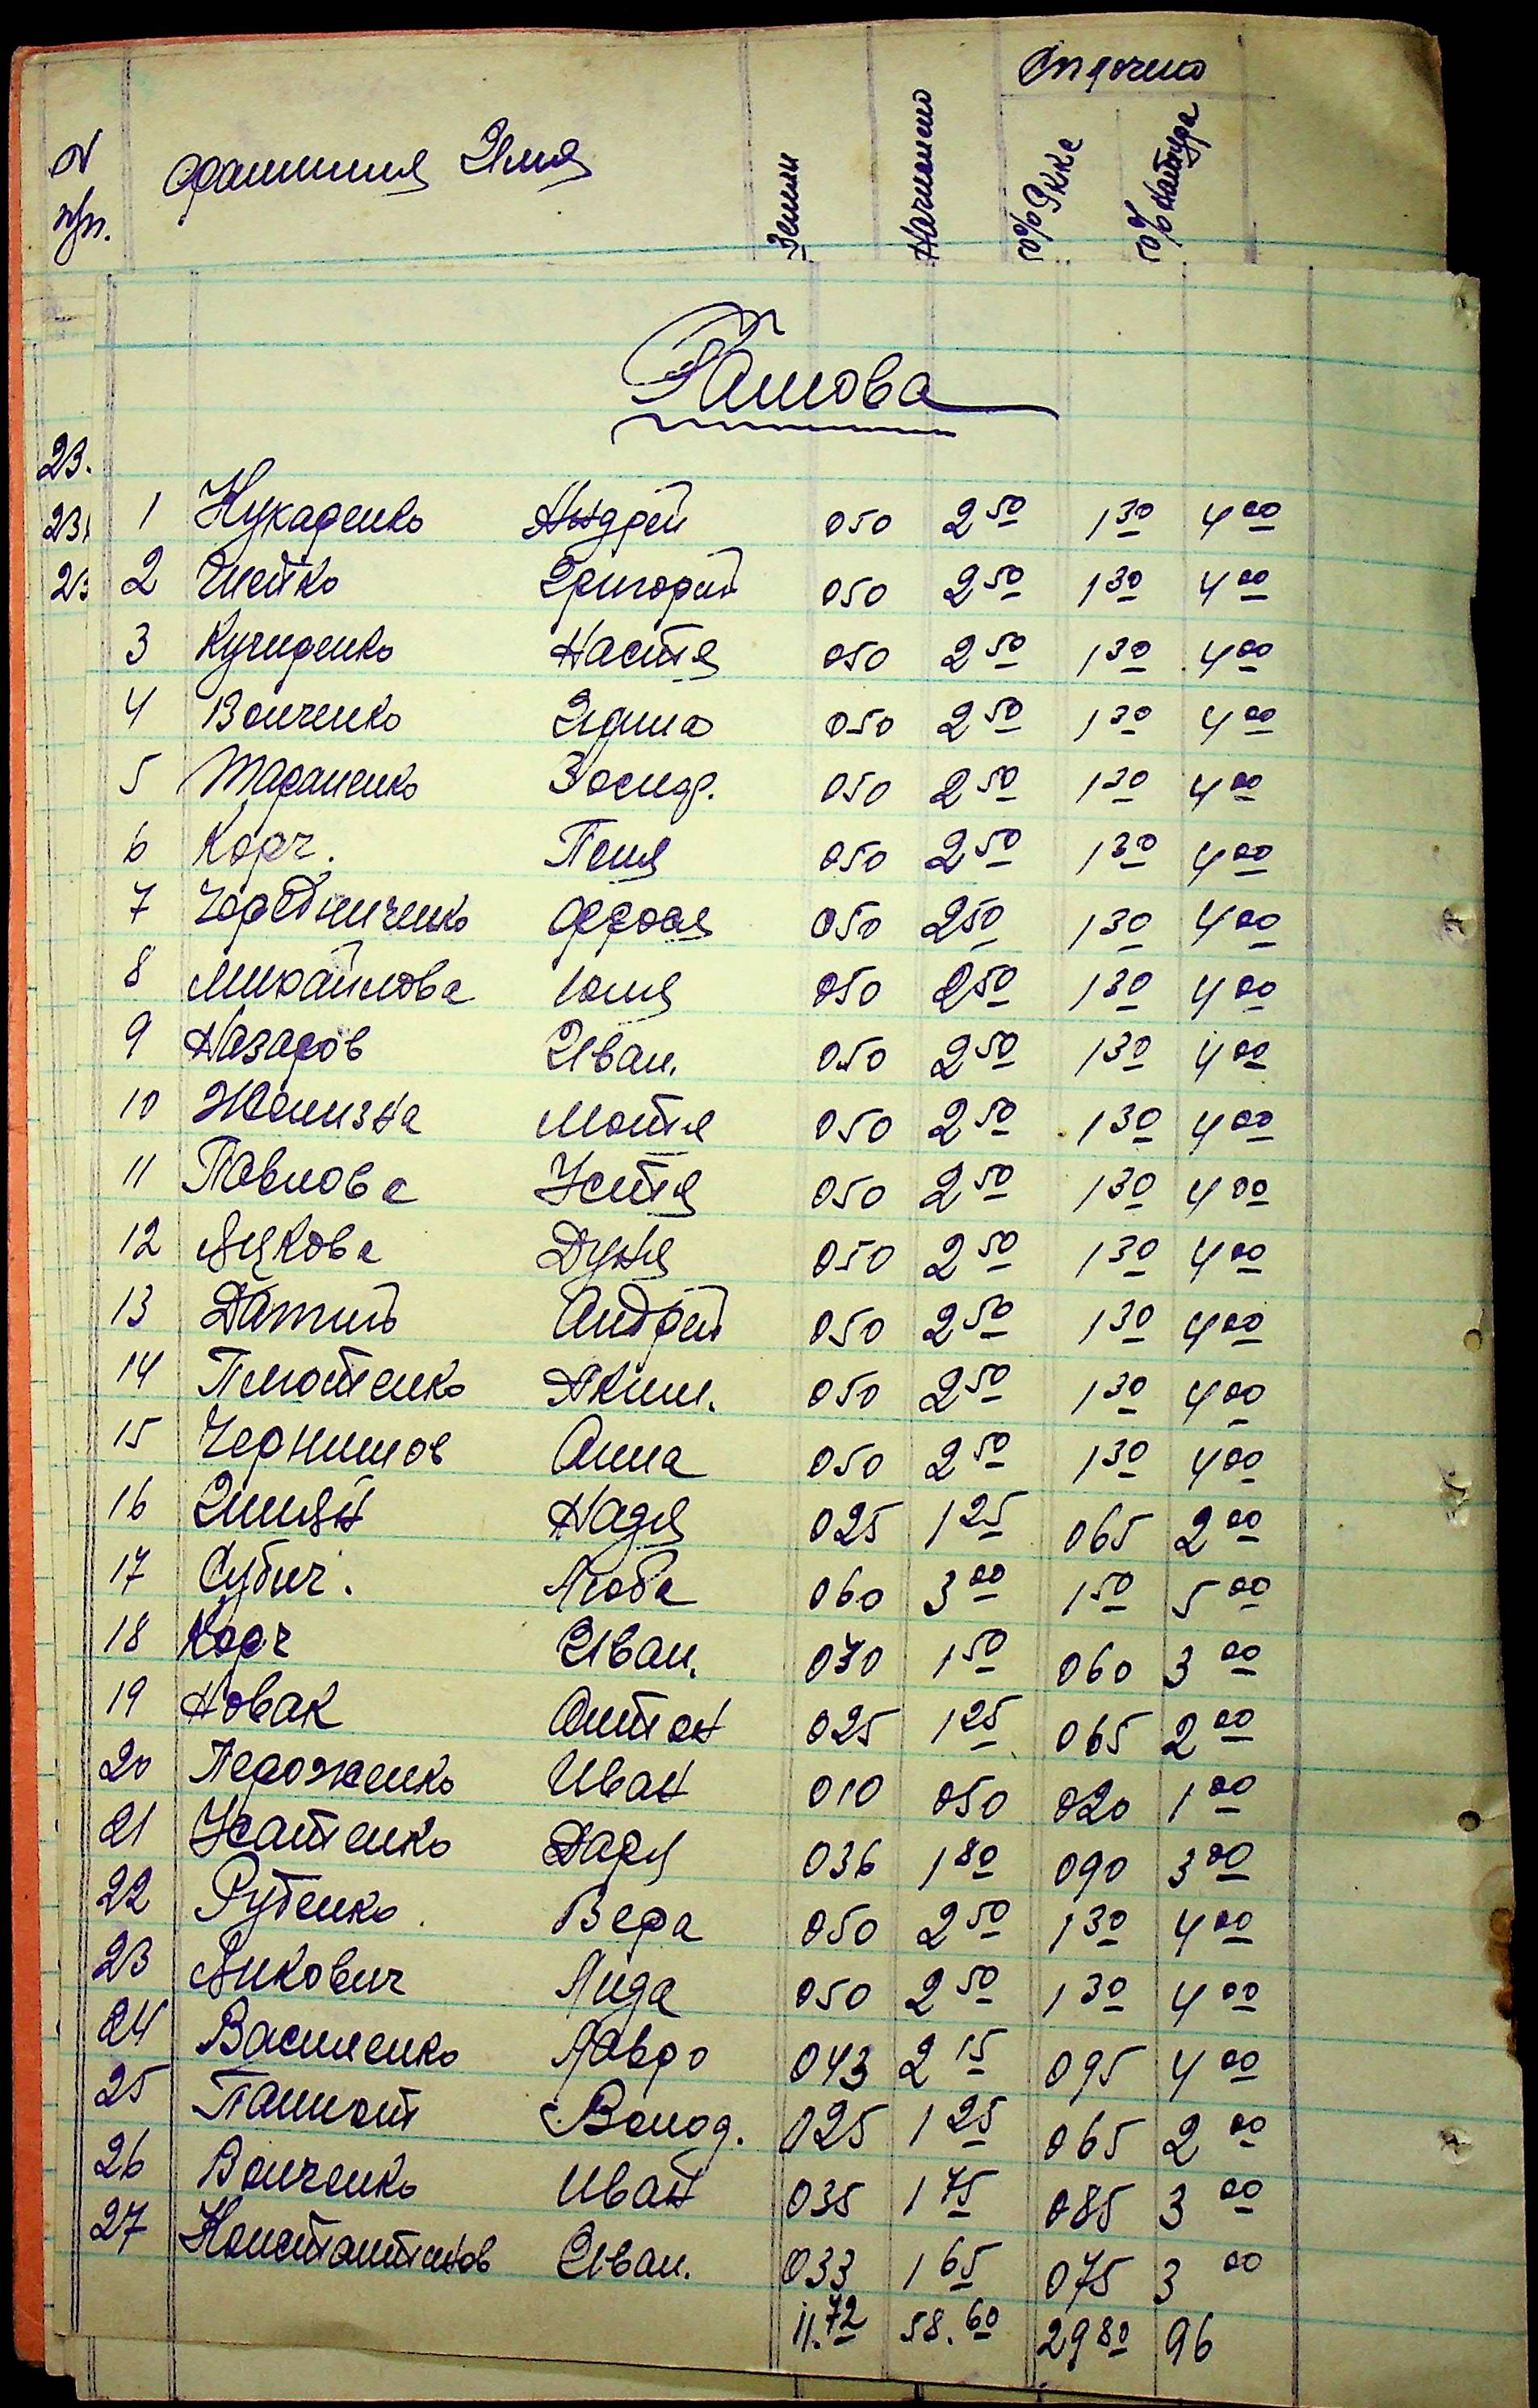 Отдочено
N п/п. Фамилия Имя Земли Начислено 50% Рккс 50% натура
Рашова
23.
23
23
1 Кукаренко Андрей 050 2 50 1 30 4 00
2 Шейко Григорий 050 2 50 1 30 4 00
3 Кучеренко Настя 050 2 50 1 30 4 00
4 Волченко 050 2 50 1 30 4 00
5 Тараненко 050 2 50 1 30 4 00
6 Корч. Поля 050 2 50 1 30 4 00
7 Чередниченко Федося 050 2 50 1 30 4 00
8 Михайлова Юля 050 2 50 1 30 4 00
9 Назаров Иван. 050 2 50 1 30 4 00
10 Железна Мотя 050 2 50 1 30 4 00
11 Павлова Устя 050 2 50 1 30 4 00
12 Яцкова Дуня 050 2 50 1 30 4 00
13 Андрей 050 2 50 1 30 4 00
14 Плотенко Яким. 050 2 50 1 30 4 00
15 Чернишов Анна 050 2 50 1 30 4 00
16 Надя 025 1 25 065 2 00
17 Субич. Люба 060 3 00 1 50 5 00
18 Корч Иван. 030 1 50 060 3 00
19 Новак Антон 025 1 25 065 2 00
20 Пероженко Иван 010 050 020 1 00
21 Усатенко Даря 036 1 80 090 3 00
22 Рубенко Вера 050 2 50 1 30 4 00
23 Янкович Лида 050 2 50 1 30 4 00
24 Василенко Лавро 043 2 15 095 4 00
25 Волод. 025 1 25 065 2 00
26 Волченко Иван 035 1 75 085 3 00
27 Константинов Иван. 033 1 65 075 3 00
11.72 58.60 29 80 96